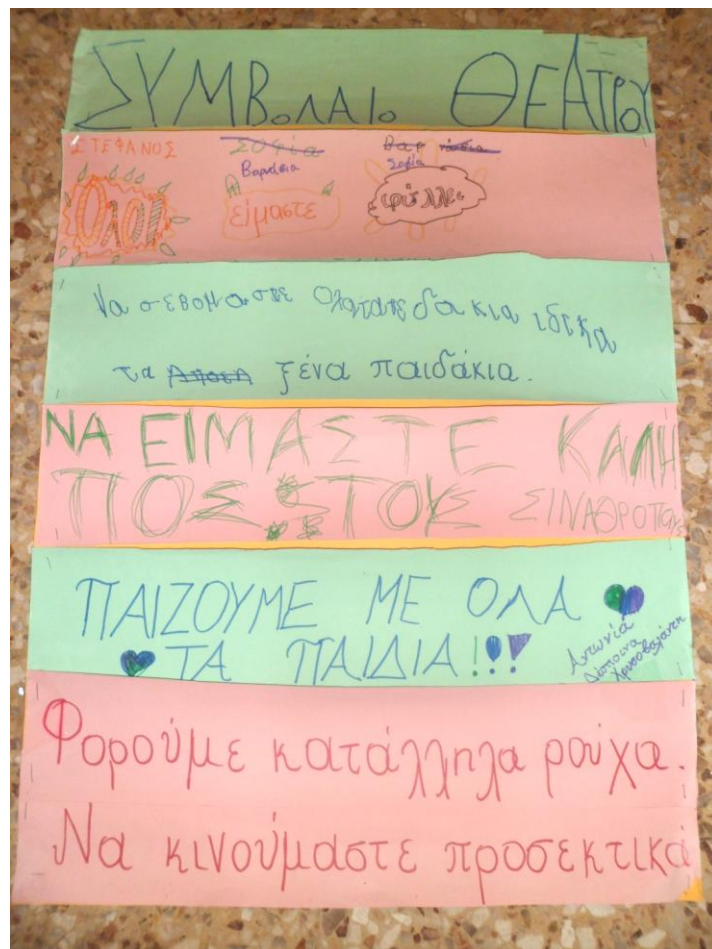 ΣΥΜΒολΑΙο ΘΕΑΤΡΟΥ
ΣΤΕΦΑΝΟΣ Σοφία Βαρ
Βαρνάσια Σοφία
Ολοι είμαστε
Να σεβομαστε ολατα
τα ξένα παιδάκια.
ΝΑ ΕΙΜΑΣΤΕ ΚΑΛΗ
ΠΟΣ ΣΤΟΥΣ ΣΙΝΑΘΡΟΠΟΥΣ
ΠΑΙΖΟΥΜΕ ΜΕ ΟΛΑ
ΤΑ ΠΑΙΔΙΑ!!!!
Αντωνία
Δέσποινα
Χρυσοβαλάντη
Φορούμε κατάλληλα ρούχα.
Να κινούμαστε προσεκτικά